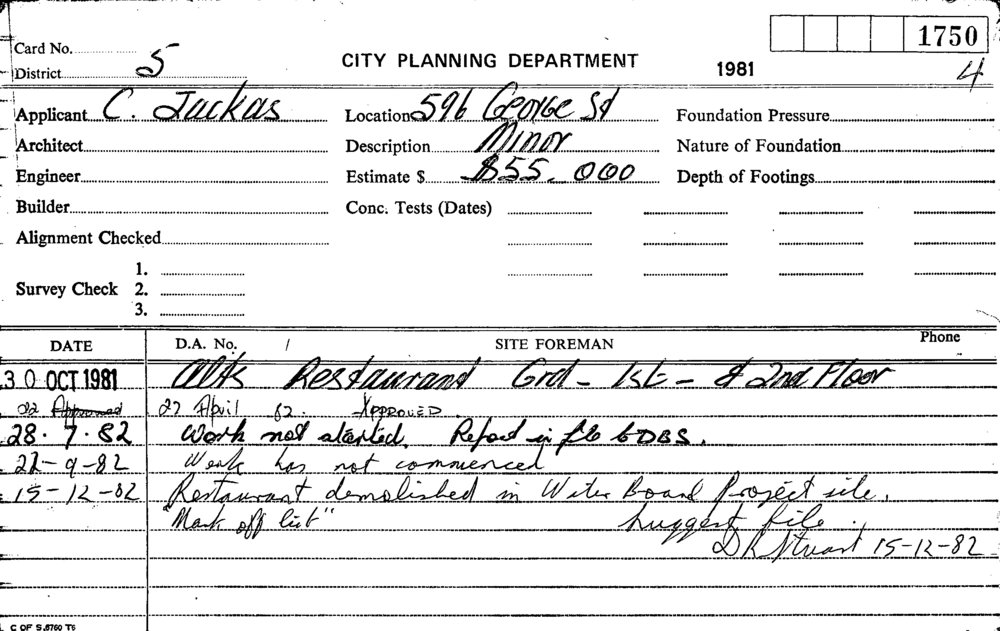 1750
Card No.
District 5
CITY PLANNING DEPARTMENT
1981
4
Applicant C. Jackas
Location 596 George St
Foundation Pressure
Architect
Description Minor
Nature of Foundation
Engineer
Estimate $ $55.000
Depth of Footings
Builder
Conc. Tests (Dates)
Alignment Checked
1.
Survey Check 2.
3.
DATE D.A. No. / SITE FOREMAN Phone
30 OCT 1981 Alts Restaurant Grd - 1st - & 2nd Floor
22 Approved 27 April 82. APPROVED.
28.7.82 Work not started. Report in file to DBS.
22-9-82 Work has not commenced
15-12-82 Restaurant demolished in Water Board Project site.
"Mark off list" Suggest file.
D R Stuart 15-12-82
C OF S.5760 T6